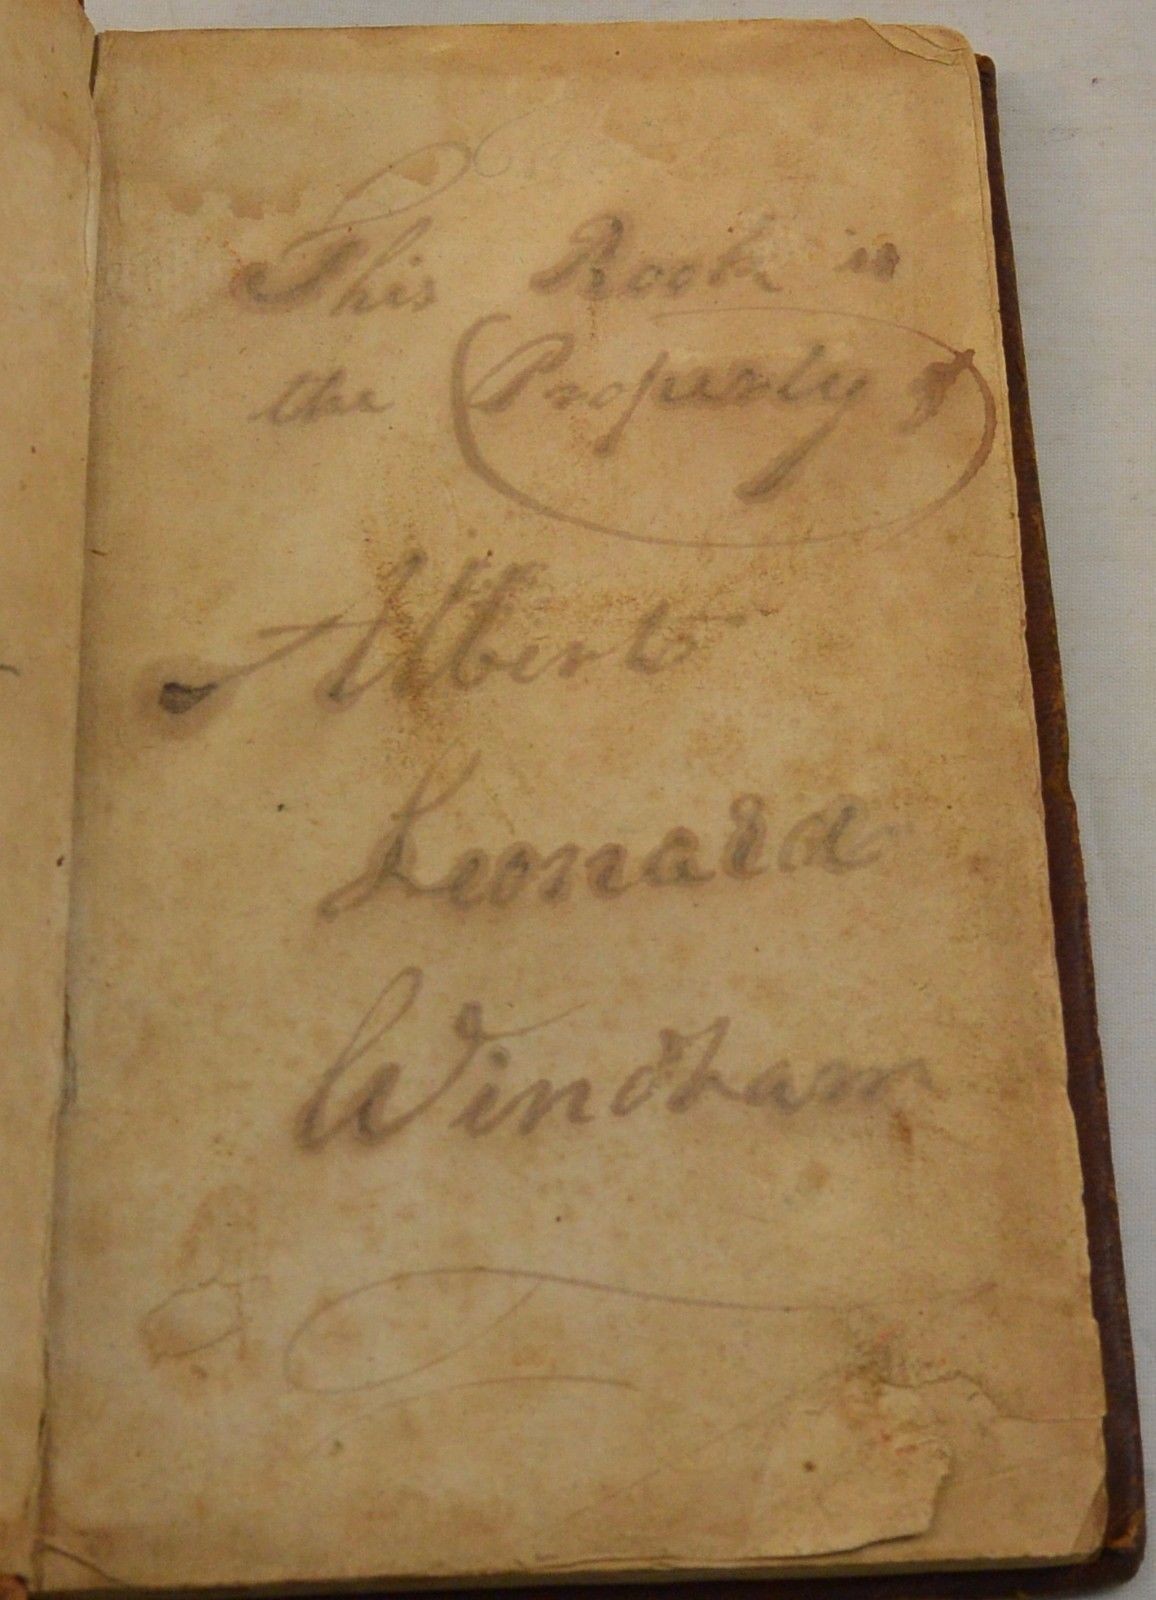 This Book is
the Property of
Albert
Leonard
Windham